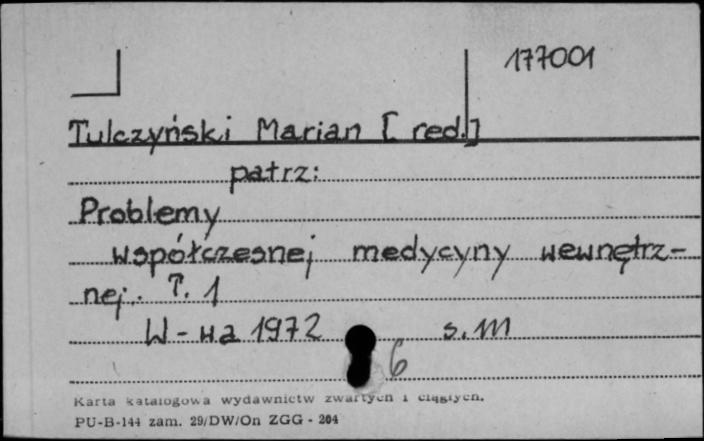 177001
Tulczyński Marian [red.]
patrz:
Problemy
współczesnej medycyny wewnętrz-
nej. T. 1
W-wa 1972 s. 111
6
Karta katalogowa wydawnictw zwartych i ciągłych.
PU-B-144 zam. 29/DW/On ZGG - 204